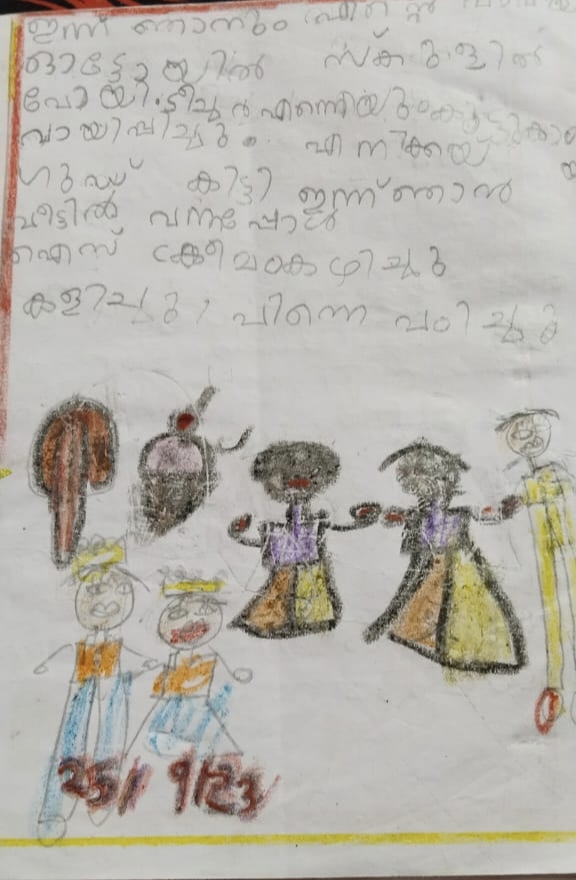 ഇന്ന് ഞാനും എന്റെ
ഓട്ടോയിൽ സ്കൂളിൽ
പോയി. ടീച്ചർ എന്നെയും
വായിപ്പിച്ചു. എനിക്ക്
ഗുഡ് കിട്ടി ഇന്ന് ഞാൻ
വീട്ടിൽ വന്നപ്പോൾ
ഐസ് ക്രീം കഴിച്ചു
കളിച്ചു, പിന്നെ പഠിച്ചു
25/9/23